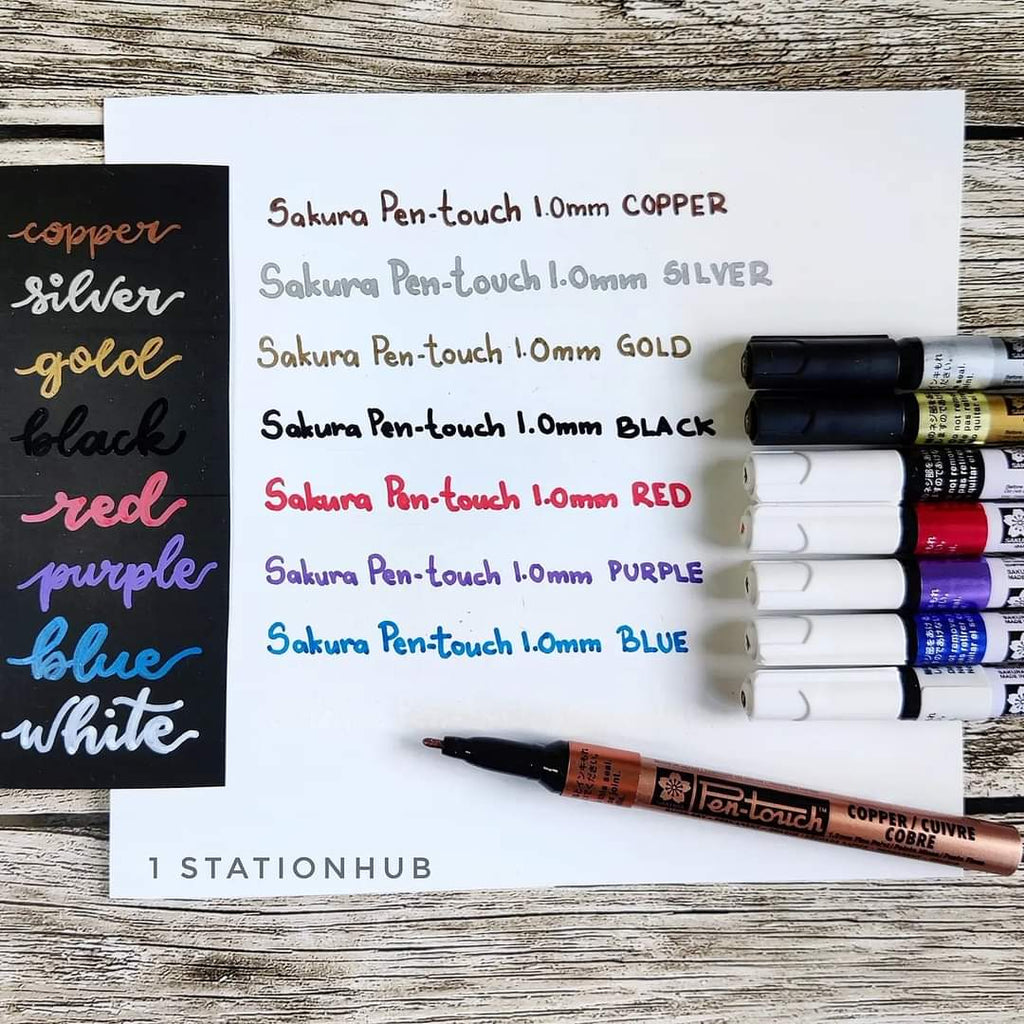 copper
silver
gold
black
red
purple
blue
white
Sakura Pen-touch 1.0mm COPPER
Sakura Pen-touch 1.0mm SILVER
Sakura Pen-touch 1.0mm GOLD
Sakura Pen-touch 1.0mm BLACK
Sakura Pen-touch 1.0mm RED
Sakura Pen-touch 1.0mm PURPLE
Sakura Pen-touch 1.0mm BLUE
Pen-touch™
COPPER / CUIVRE
COBRE
1 STATIONHUB